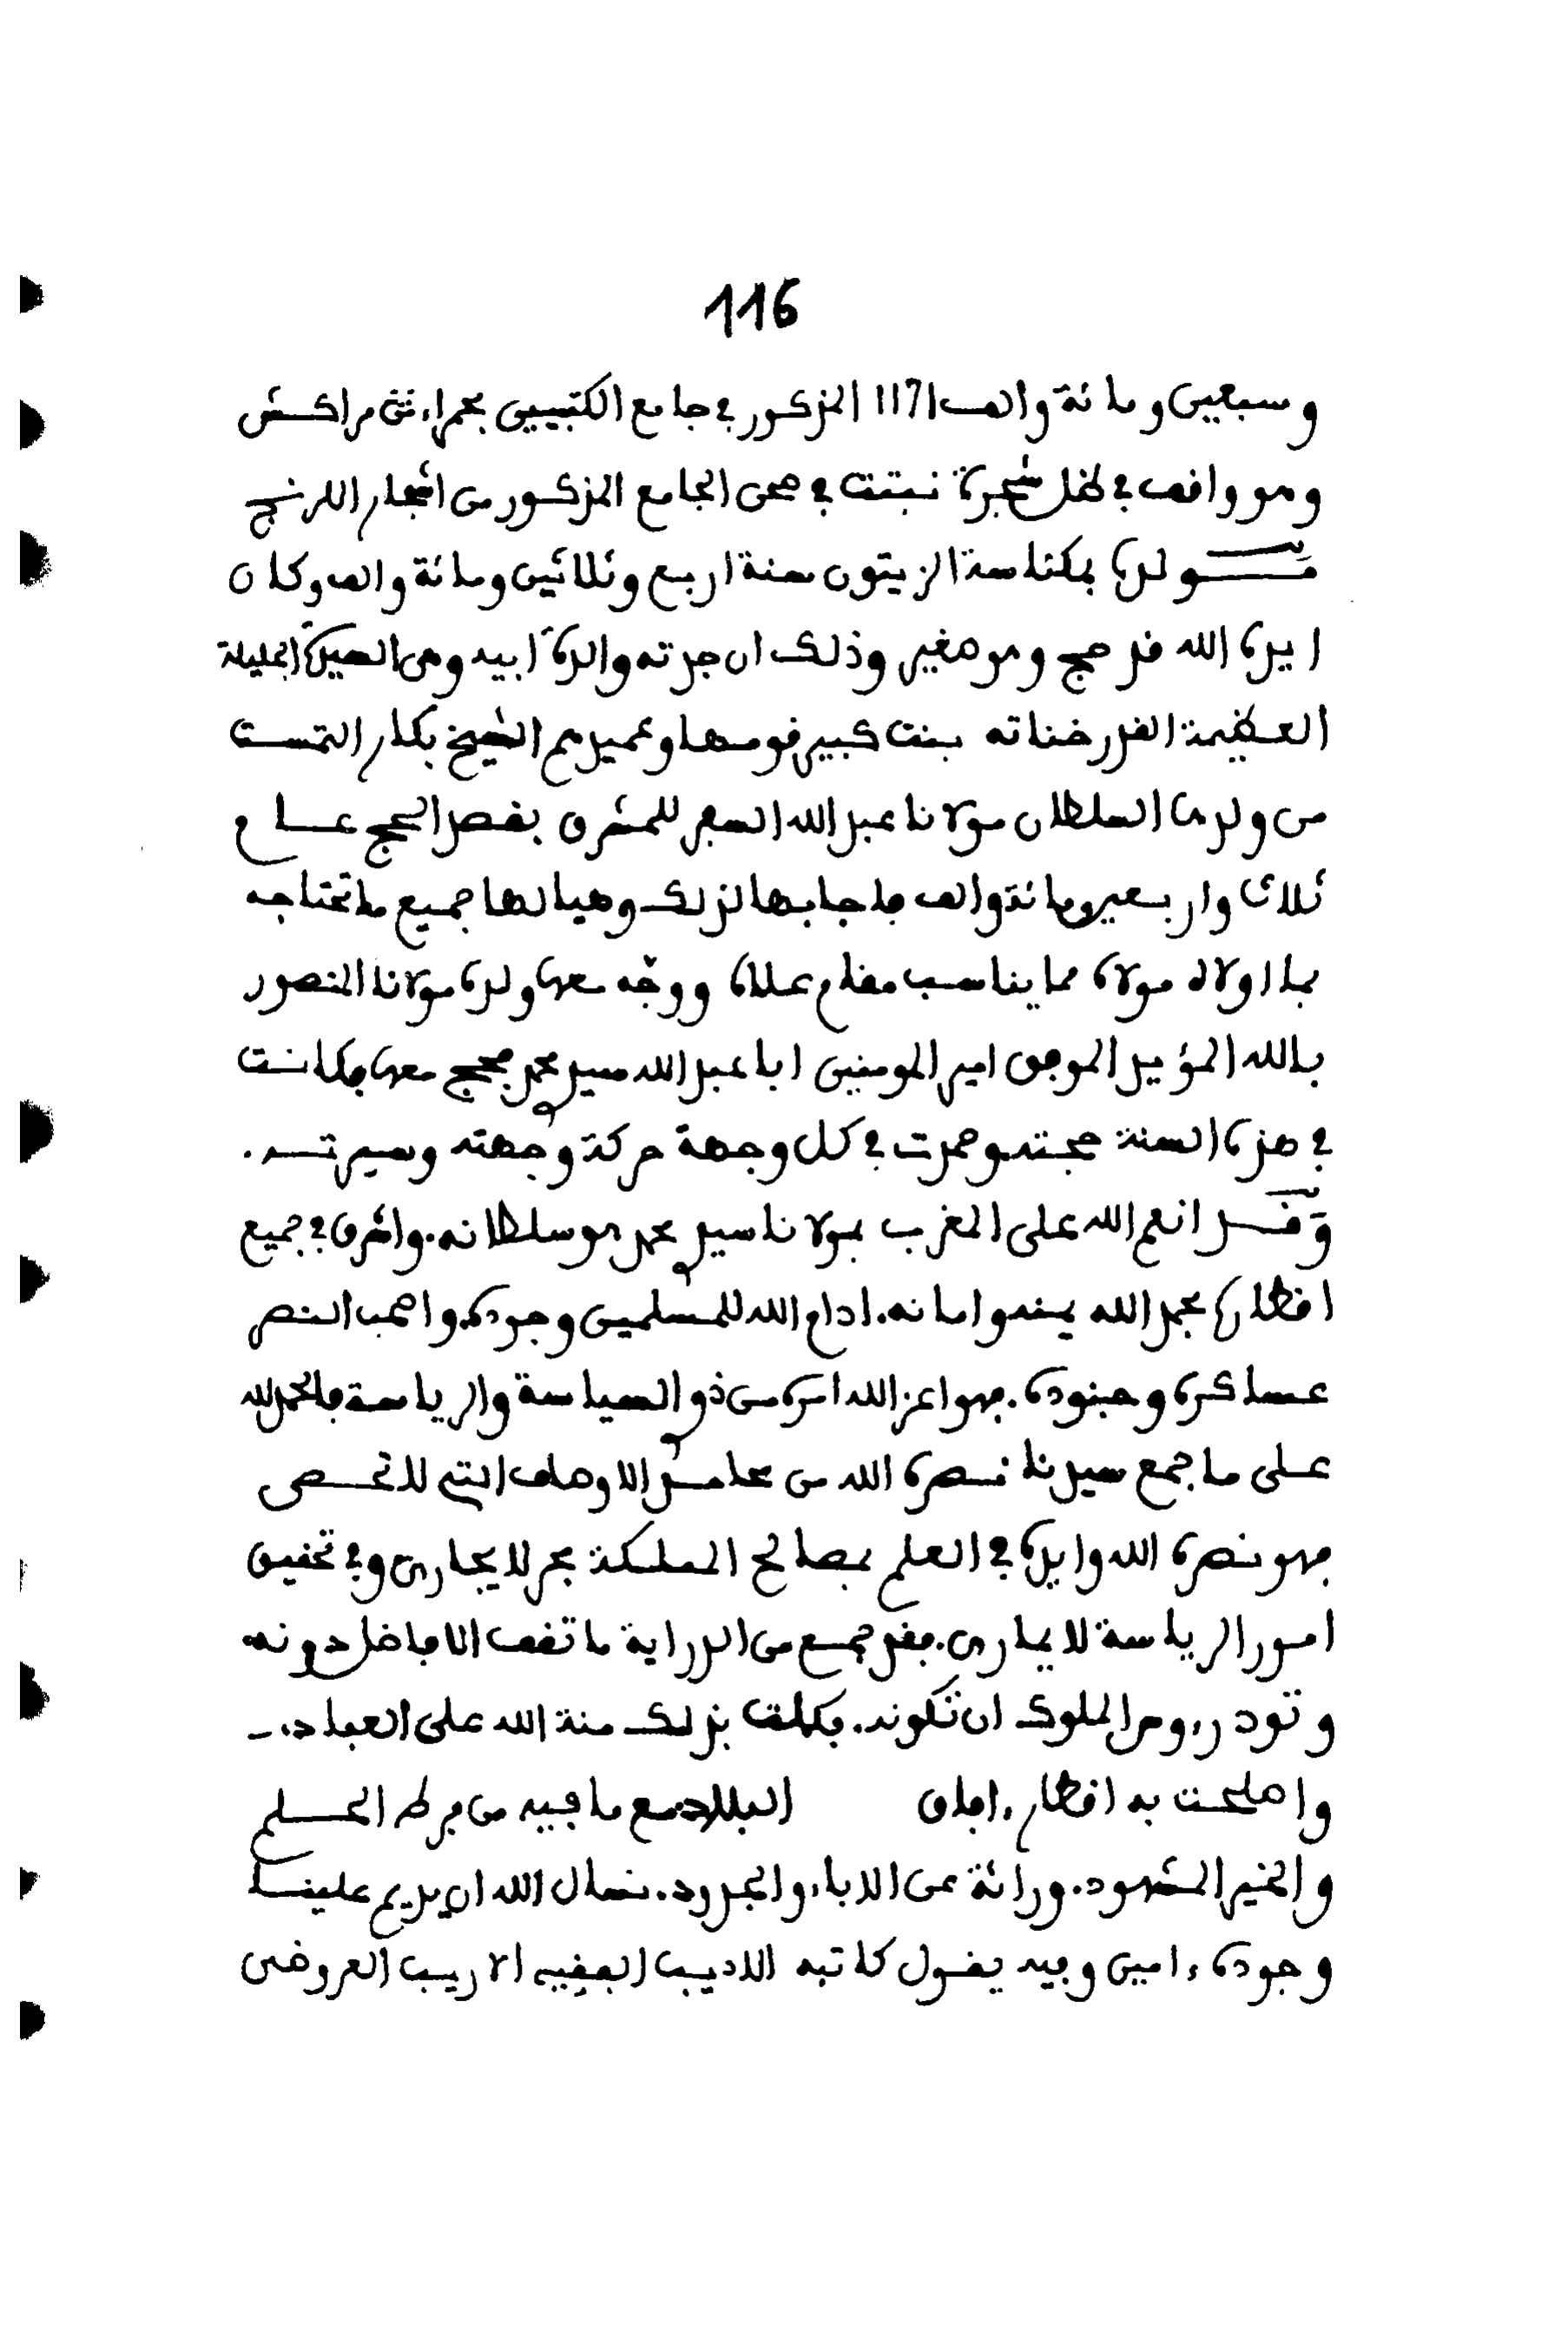 116
وسبعين ومائة والف 1171 المذكور في جامع الكتبيين بحمراء مراكش
وهو واقف في ظل شجرة نبتت في صحن الجامع المذكور من اشجار اللرنج
مولده بمكناسة الزيتون سنة اربع وثلاثين ومائة والف وكان
ايده الله قد حج وهو صغير وذلك ان جدته والدة ابيه وهى السيدة الجليلة
العظيمة القدر خناته بنت كبير قومها وعميدهم الشيخ بكار التمست
من ولدها السلطان مولانا عبد الله السفر للمشرق بقصد الحج عام
ثلاث واربعين ومائة والف فاجابها لذلك وهيا لها جميع ما تحتاجه
بل اولاه مولاه مما يناسب مقام علاه ووجّه معها ولده مولانا المنصور
بالله المؤيد الموفق امير المومنين ابا عبد الله سيد محمد فحج معها فكانت
في هذه السنة حجته وحمدت في كل وجهة حركة وجهته وسيرته.
وَقد انعم الله على المغرب بمولانا سيد محمد هو سلطانه. واشرق في جميع
اقطاره بحمد الله يمنه وامانه. ادام الله للمسلمين وجوده. واصحب النصر
عساكره وجنوده. فهو اعز الله امره من ذو السياسة والرياسة فالحمد لله
على ما جمع سيدنا نصره الله من محامد الاوصاف التي لا تحصى
فهو نصره الله وايده في العلم بمصالح المملكة بحر لا يجارى وفي تحقيق
امور الرياسة لا يمارى. فقد جمع من الدراية ما تقف الافاضل دونه
وتود رءوس الملوك ان تكونه. فكملت بذلك منة الله على العباد. ـ
واصلحت به اقطار ءافاق البلاد. مع ما فيه من فرط الحلم
والخير المشهود. وراثة عن الاباء والجدود. نسال الله ان يديم علينا
وجوده ءامين وفيه يقول كاتبه الاديب الفقيه الاريب العروضى